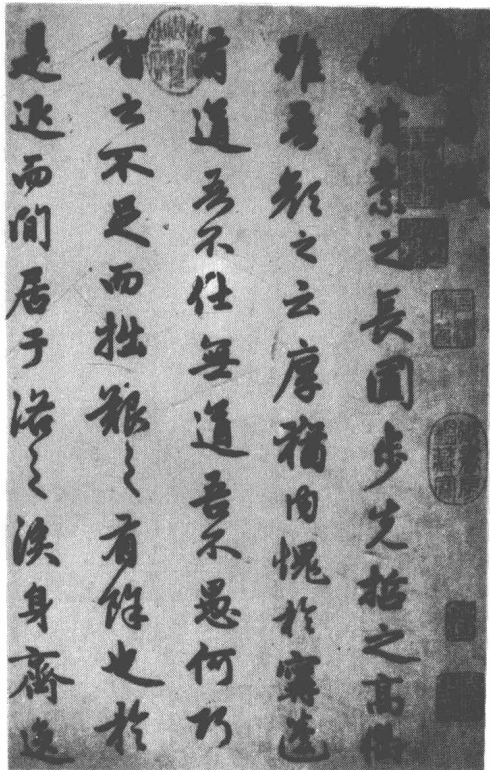 墳素之長圃步先哲之高衢
雖吾顏之云厚猶内愧於甯蘧
有道吾不仕無道吾不愚何巧
智之不足而拙艱之有餘也於
是退而閒居于洛之涘身齊逸